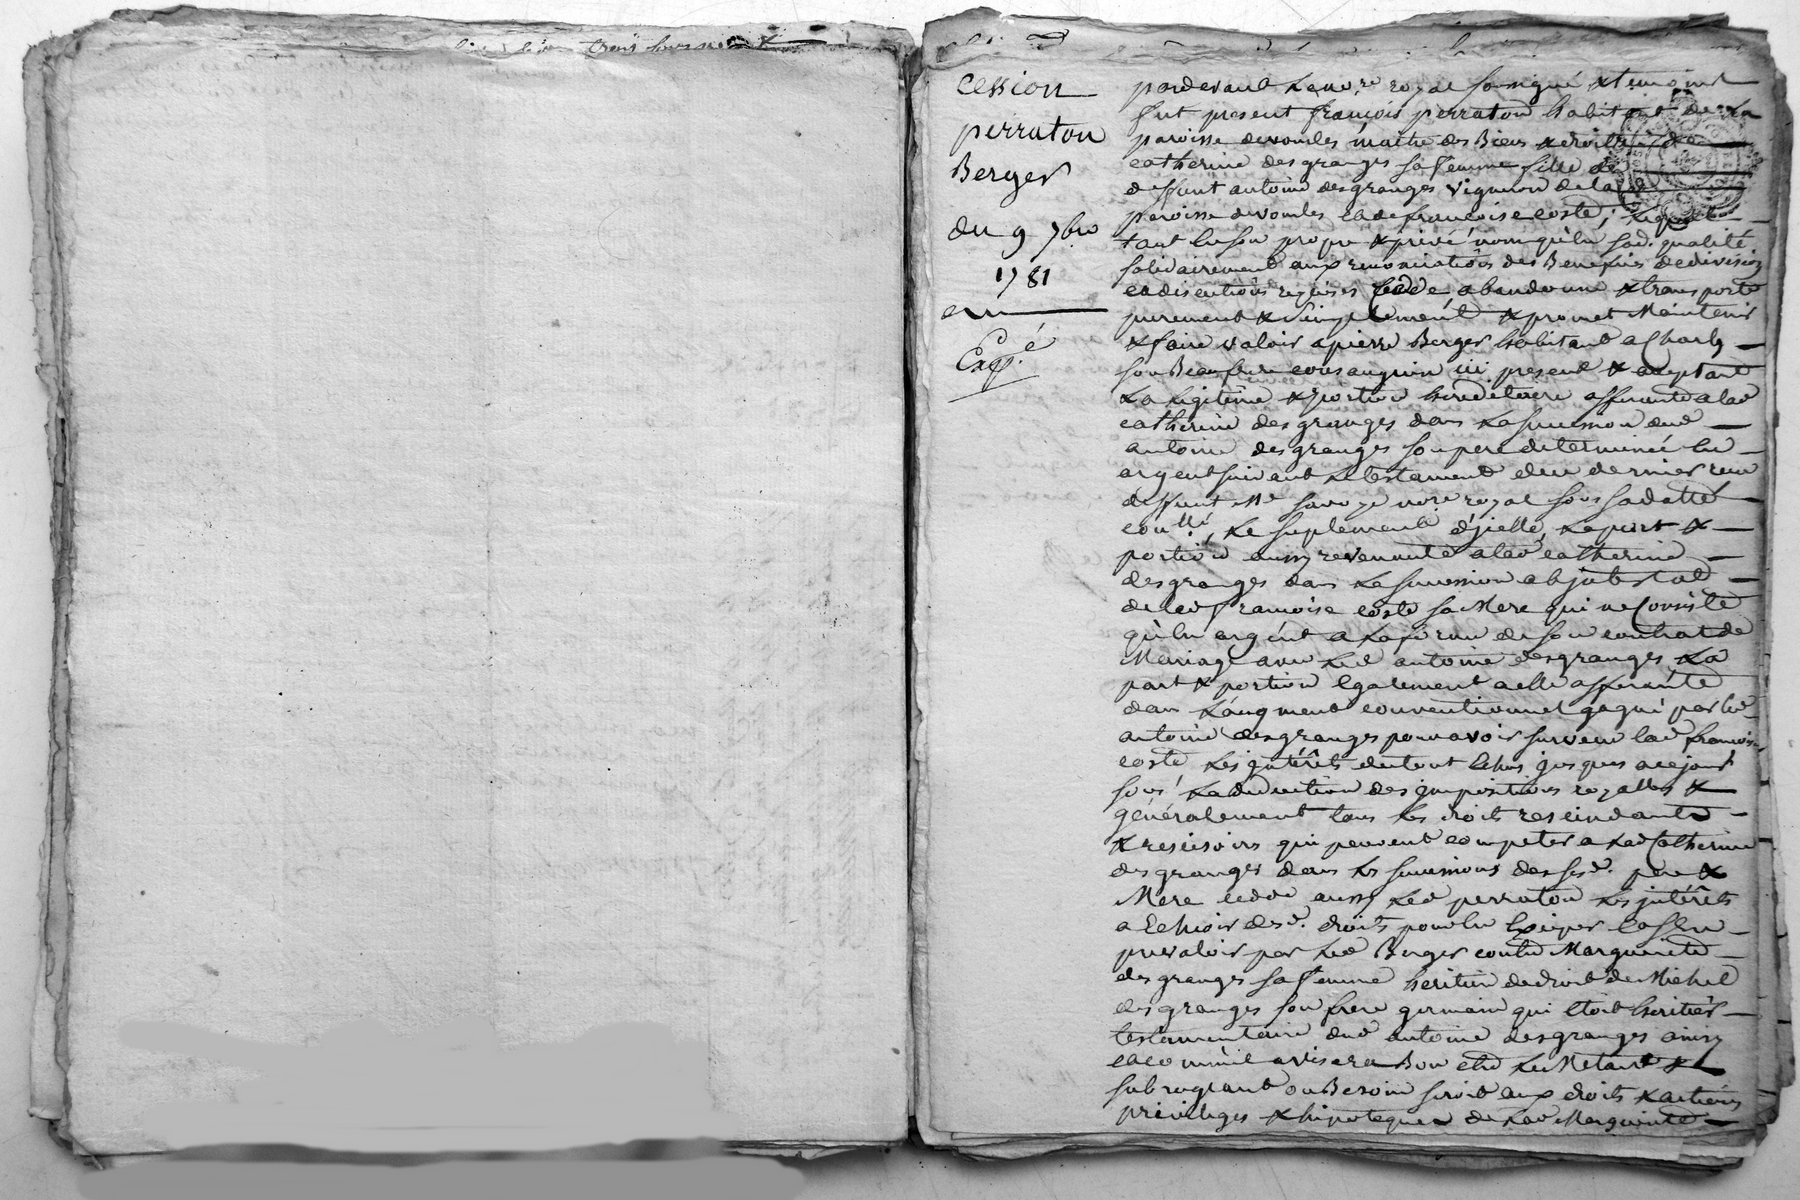 cession
perraton
Berger
du 9 7bre
1781
Exp.é
pardevant Le no.re royal soussigné & temoins
fut present françois perraton habitant de la
paroisse devourles maitre des Biens & droits de
catherine desgranges sa femme fille de
deffunt antoine desgranges vigneron de la
paroisse devourles et de françoise coste, Lequel
tant en son propre & privé nom qu'en sad. qualité
solidairement aux renonciations des Benefices de division
et discutions requises Cede abandonne & transporte
purement & simplement & promet Maintenir
& faire valoir a pierre Berger habitant a Charly
son Beaufrere consanguin ici present & acceptant
La Legitime & portion hereditaire afferante a lad
catherine desgranges dans La succession dud
antoine desgranges son pere determinée en
argent suivant Le testament de ce dernier reçu
deffunt Me savoye nore royal sous sa datte
conlle, Le suplement d'jcelle, La part &
portion aussy revenante a lad catherine
desgranges dans La succession abjntestat
de lad françoise coste sa Mere qui ne Consiste
qu'en argent a La forme de son contrat de
Mariage avec Led antoine desgranges La
part & portion Egalement a elle afferante
dans L'augment conventionnel gagné par led
antoine desgranges pour avoir survecu lad françoise
coste Les jntérêts du tout Echus jusques a ce jour
sous La deduction des jmpositions royalles &
généralement tous Les droits rescindants
& rescisoirs qui peuvent competer a Lad Catherine
desgranges dans Les successions des sesd. pere &
Mere cedde aussy Led perraton Les jntérêts
a Echoir desd. droits pour en Exiger Et s'en
prevaloir par Led Berger contre Marguerite
desgranges sa femme heritiere de droit de Michel
desgranges son frere germain qui Etoit heritier
testamentaire dud antoine desgranges ainsy
et comm'il avisera Bon etre Le Metant &
subrogeant ou Besoin seroit aux droits & actions
privileges & hipoteques de Lad Marguerite